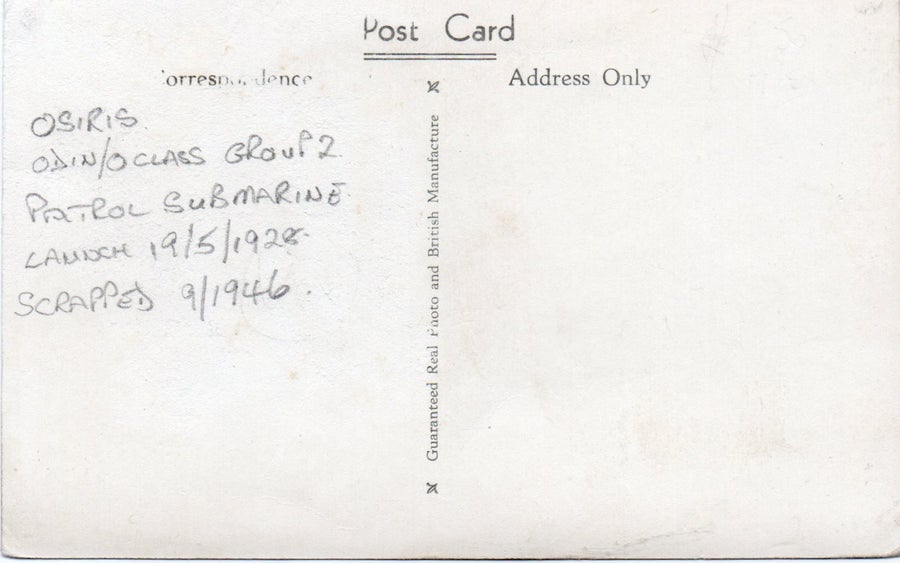 Post Card
Correspondence
Address Only
OSIRIS
ODIN/O CLASS GROUP 2
PATROL SUBMARINE
LAUNCH 19/5/1928
SCRAPPED 9/1946.
Guaranteed Real Photo and British Manufacture